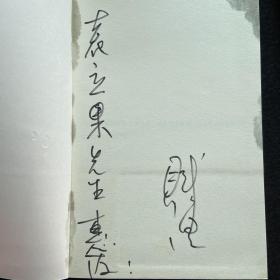 袁立果先生惠存!